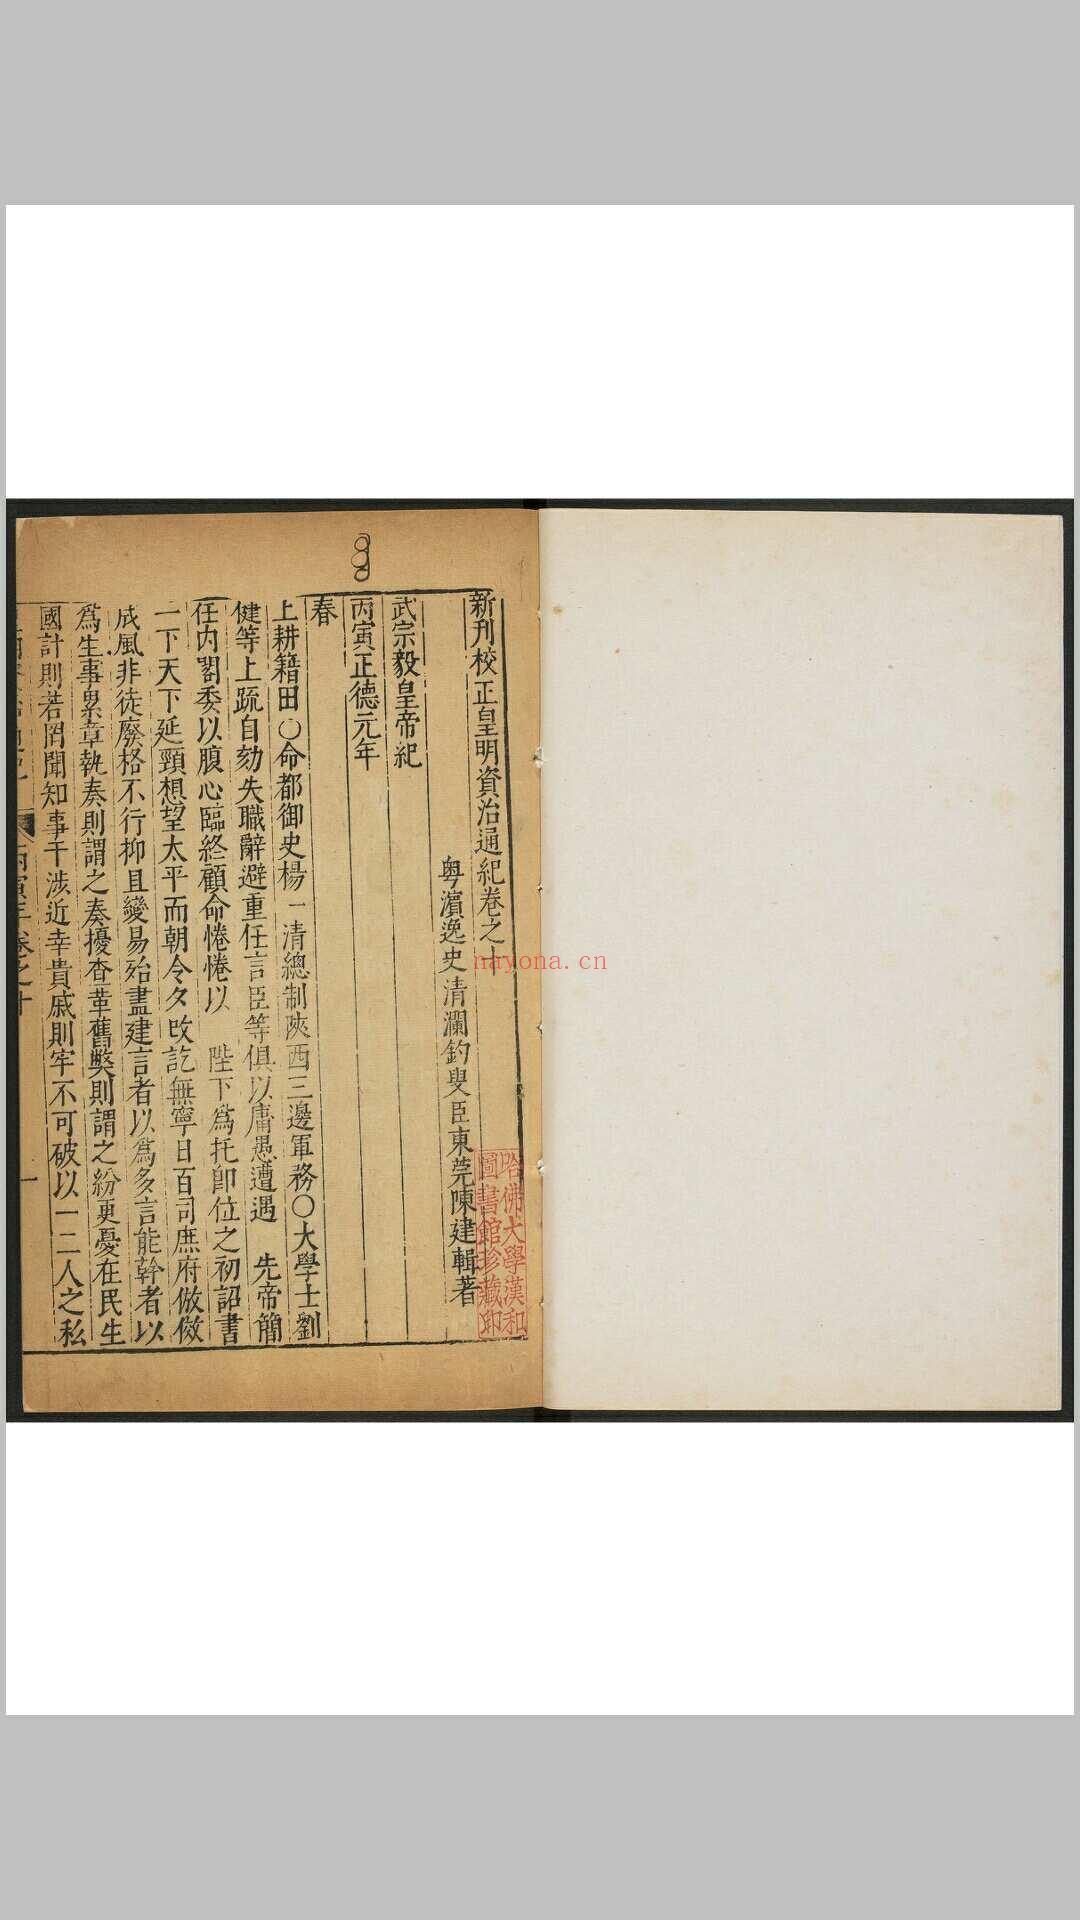 新刊校正皇明資治通紀卷之十
粵濱逸史清瀾釣叟臣東莞陳建輯著
武宗毅皇帝紀
丙寅正德元年
春
上耕籍田○命都御史楊一清總制陝西三邊軍務○大學士劉
健等上疏自劾失職辭避重任言臣等俱以庸愚遭遇　先帝簡
任内閣委以腹心臨終顧命惓惓以　陛下爲托即位之初詔書
一下天下延頸想望太平而朝令夕改訖無寧日百司庶府倣傚
成風非徒廢格不行抑且變易殆盡建言者以爲多言能幹者以
爲生事累章執奏則謂之奏擾查革舊獘則謂之紛更憂在民生
國計則若罔聞知事干涉近幸貴戚則牢不可破以一二人之私
丙寅年卷之十
一
哈佛大學漢和
圖書館珍藏印
nayona.cn